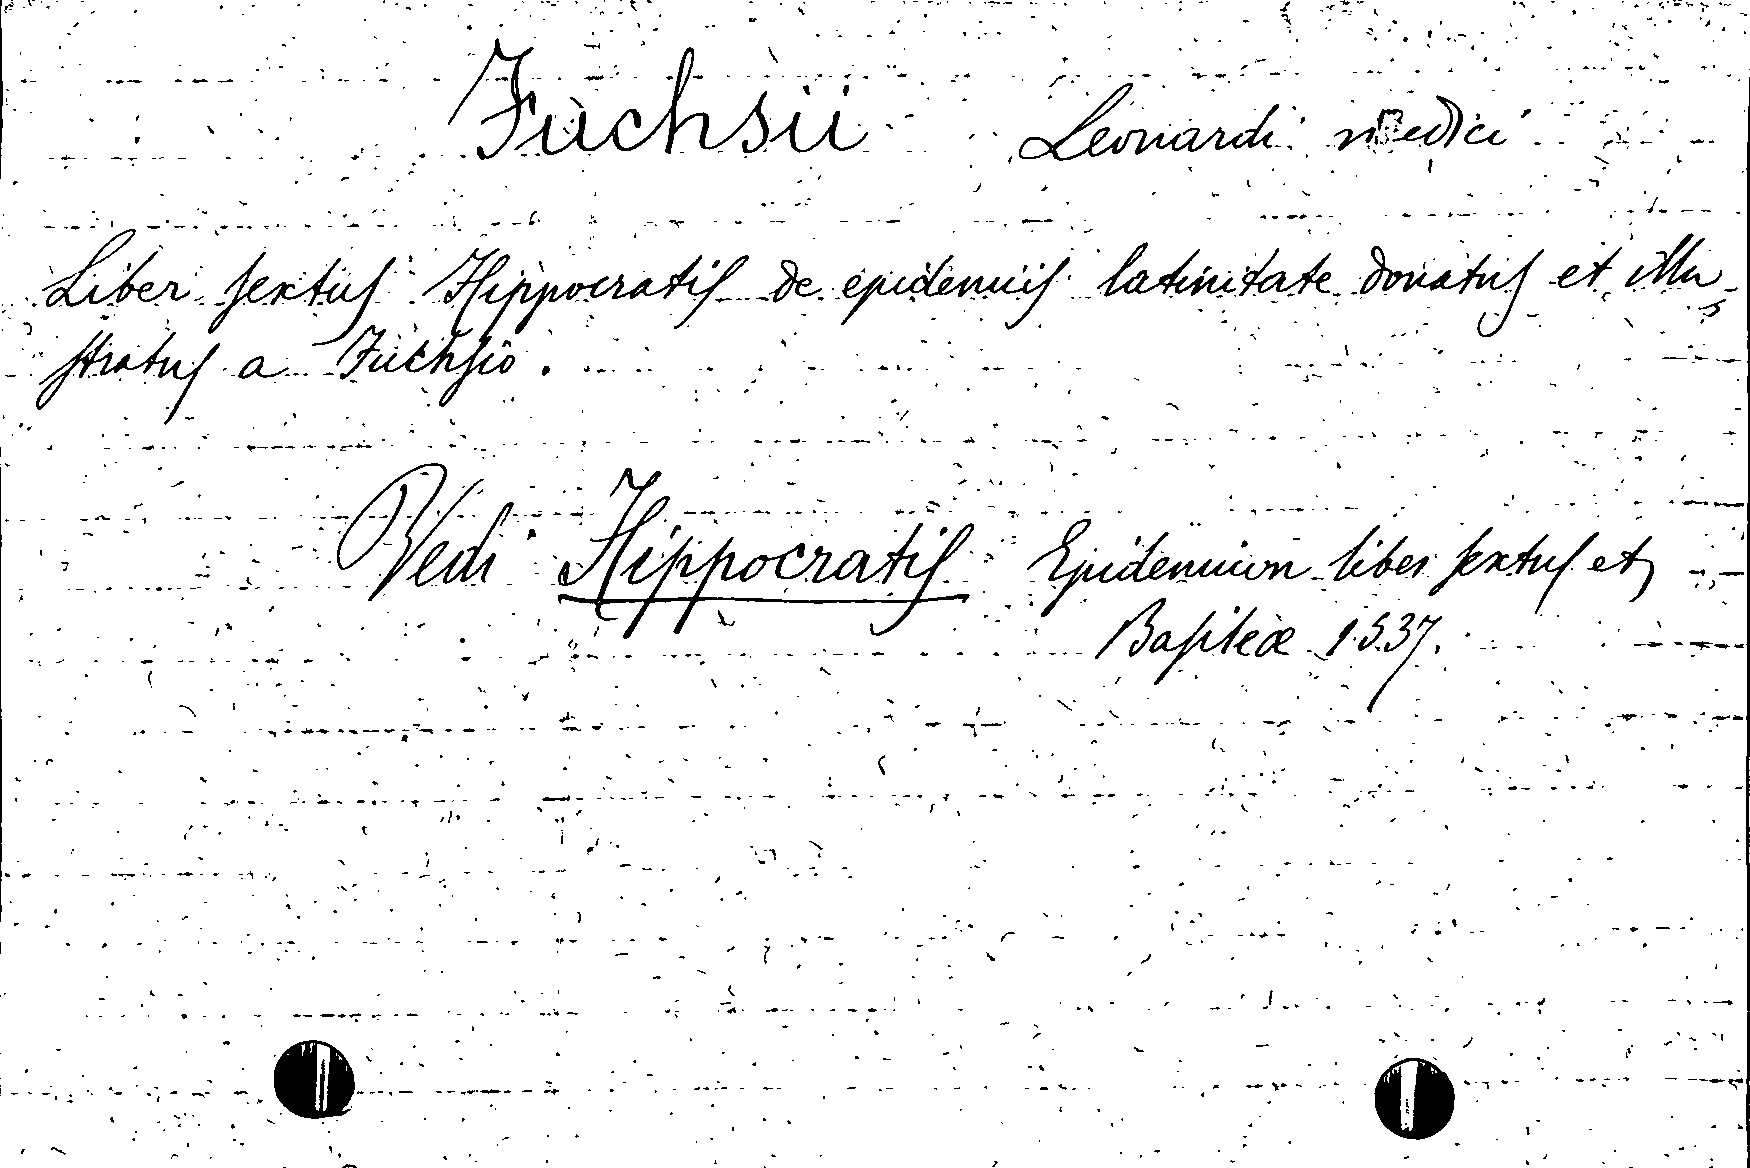 Fuchsii Leonardi medici
Liber sextus Hippocratis de epidemiis latinitate donatus et illu-
stratus a Fuchsio.
Vedi Hippocratis Epidemion liber sextus et
Basileæ 1537.